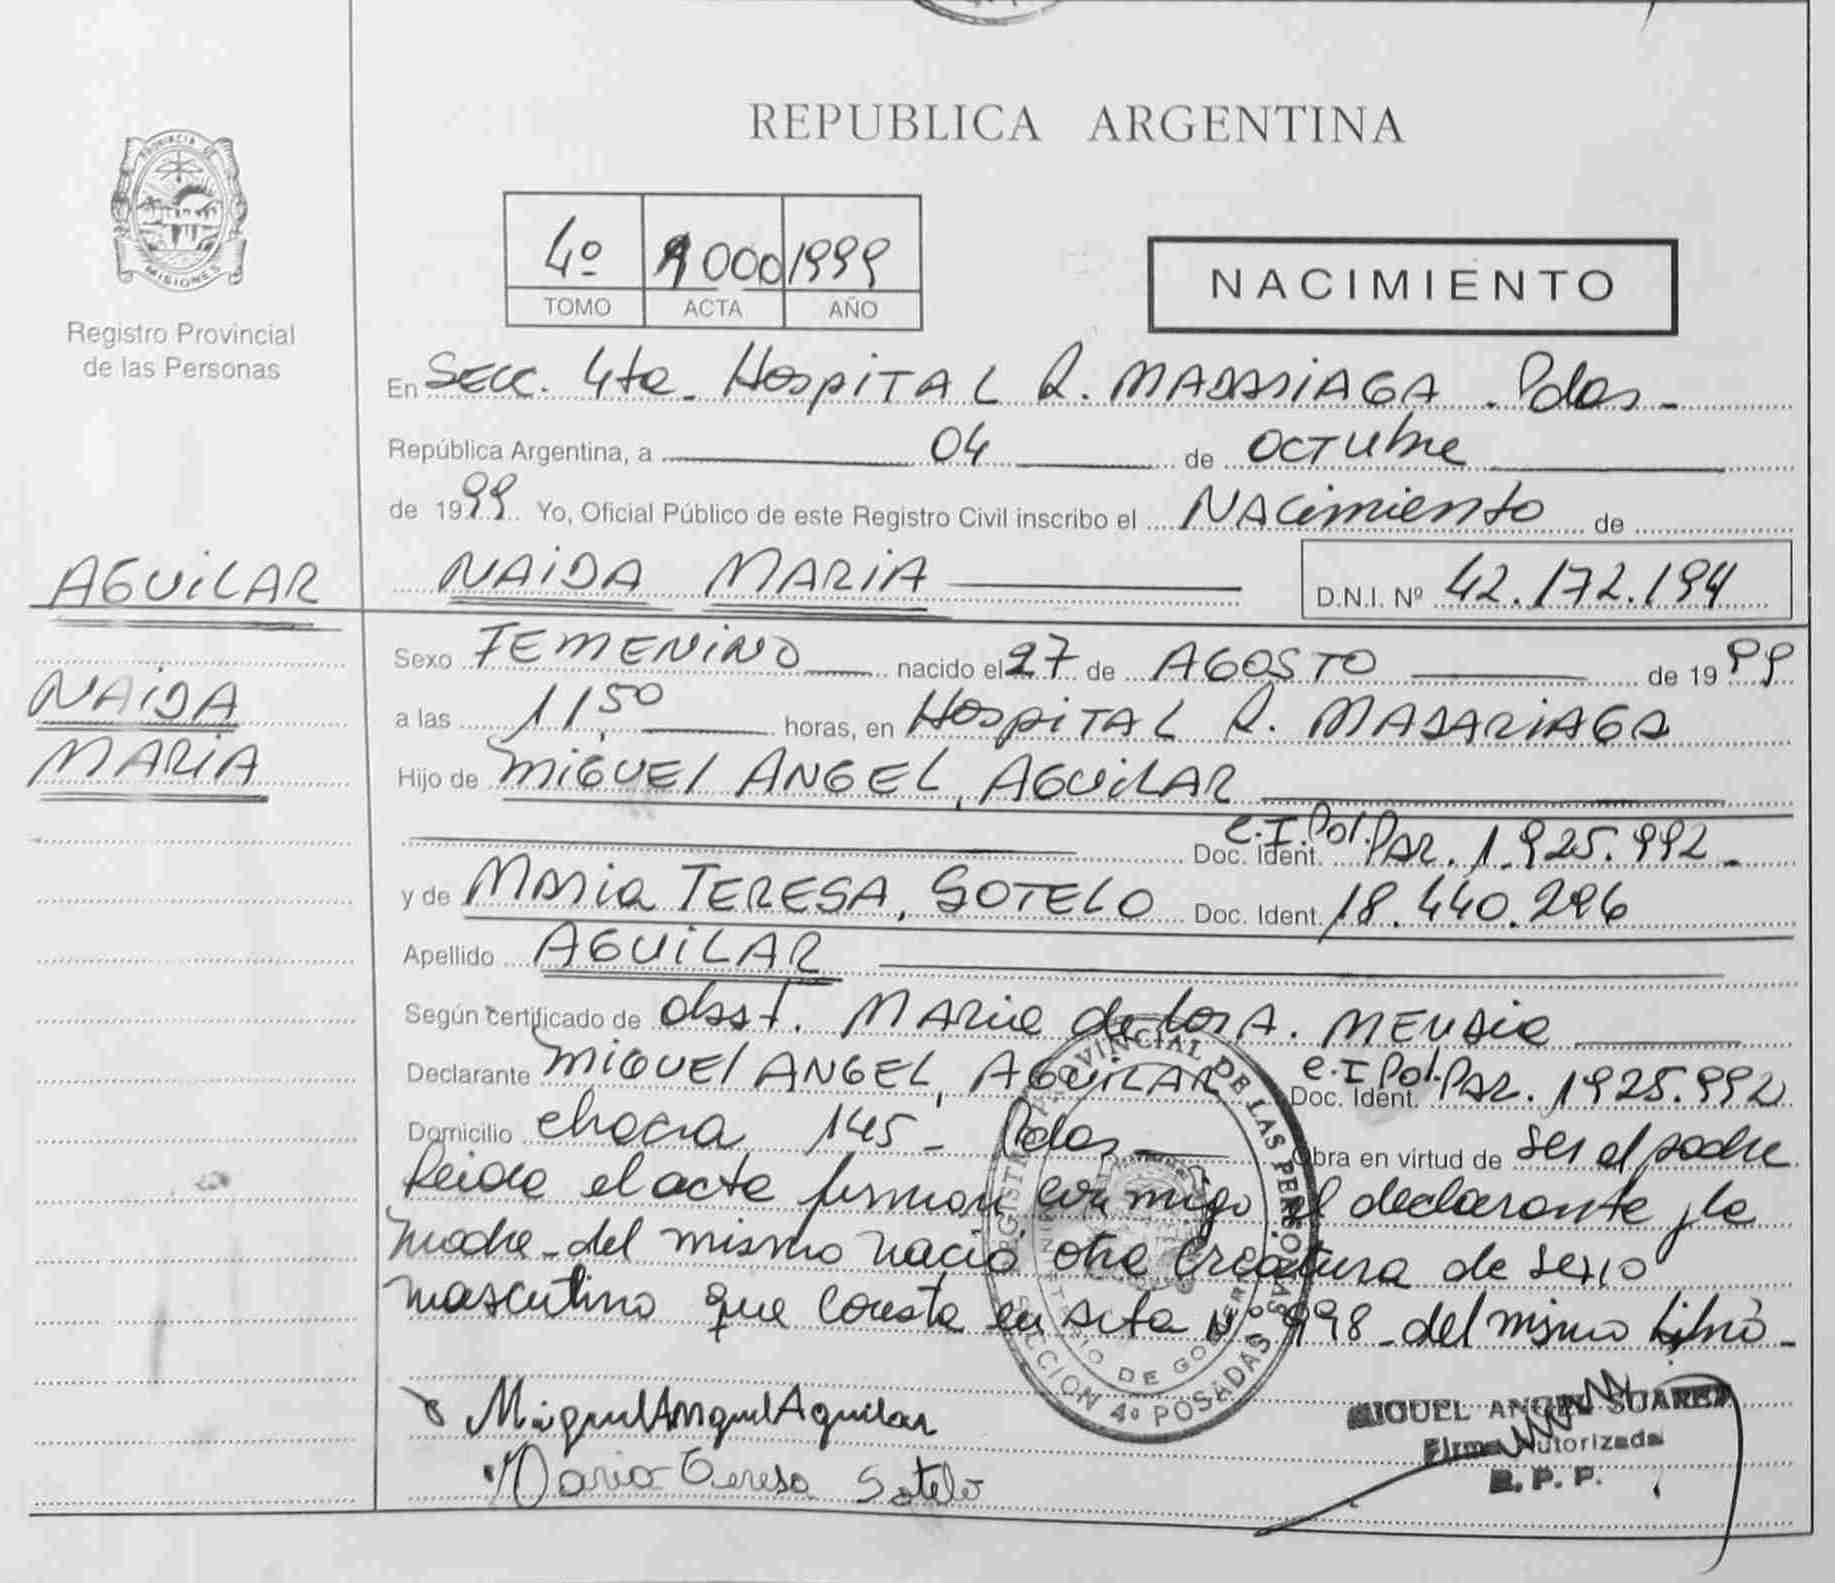 REPUBLICA ARGENTINA
PROVINCIA DE
MISIONES
Registro Provincial
de las Personas
4º 1000 1999
TOMO ACTA AÑO
NACIMIENTO
En Secc. 4ta. Hospital R. MADARIAGA - Pdas -
República Argentina, a 04 de octubre
de 1999 Yo, Oficial Público de este Registro Civil inscribo el Nacimiento de
NAIDA MARIA D.N.I. Nº 42.172.194
AGUILAR
NAIDA
MARIA
Sexo FEMENINO nacido el 27 de AGOSTO de 1999
a las 11,50 horas, en Hospital R. MADARIAGA
Hijo de MIGUEL ANGEL, AGUILAR
Doc. Ident. C.I.Pol.Par. 1.925.992 -
y de Maria TERESA, SOTELO Doc. Ident. 18.440.296
Apellido AGUILAR
Según certificado de obst. Maria de los A.
Declarante MIGUEL ANGEL, AGUILAR Doc. Ident. C.I Pol.Par. 1925.992
Domicilio chacra 145 - Pdas Obra en virtud de ser el padre
Leida el acta firman conmigo el declarante y la
madre - del mismo nació otra creatura de sexo
masculino que consta en acta Nº 998 - del mismo Libro -
REGISTRO PROVINCIAL DE LAS PERSONAS
MINISTERIO DE GOBIERNO
SECCION 4º POSADAS
Miguel Angel Aguilar
Maria Teresa Sotelo
MIGUEL ANGEL SUAREZ
Firma Autorizada
R. P. P.